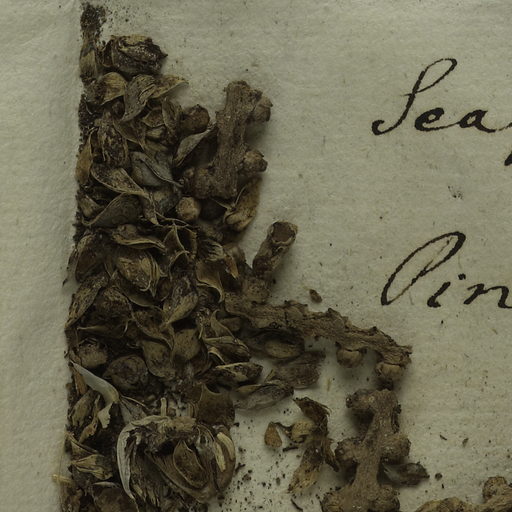 Sea
Pin